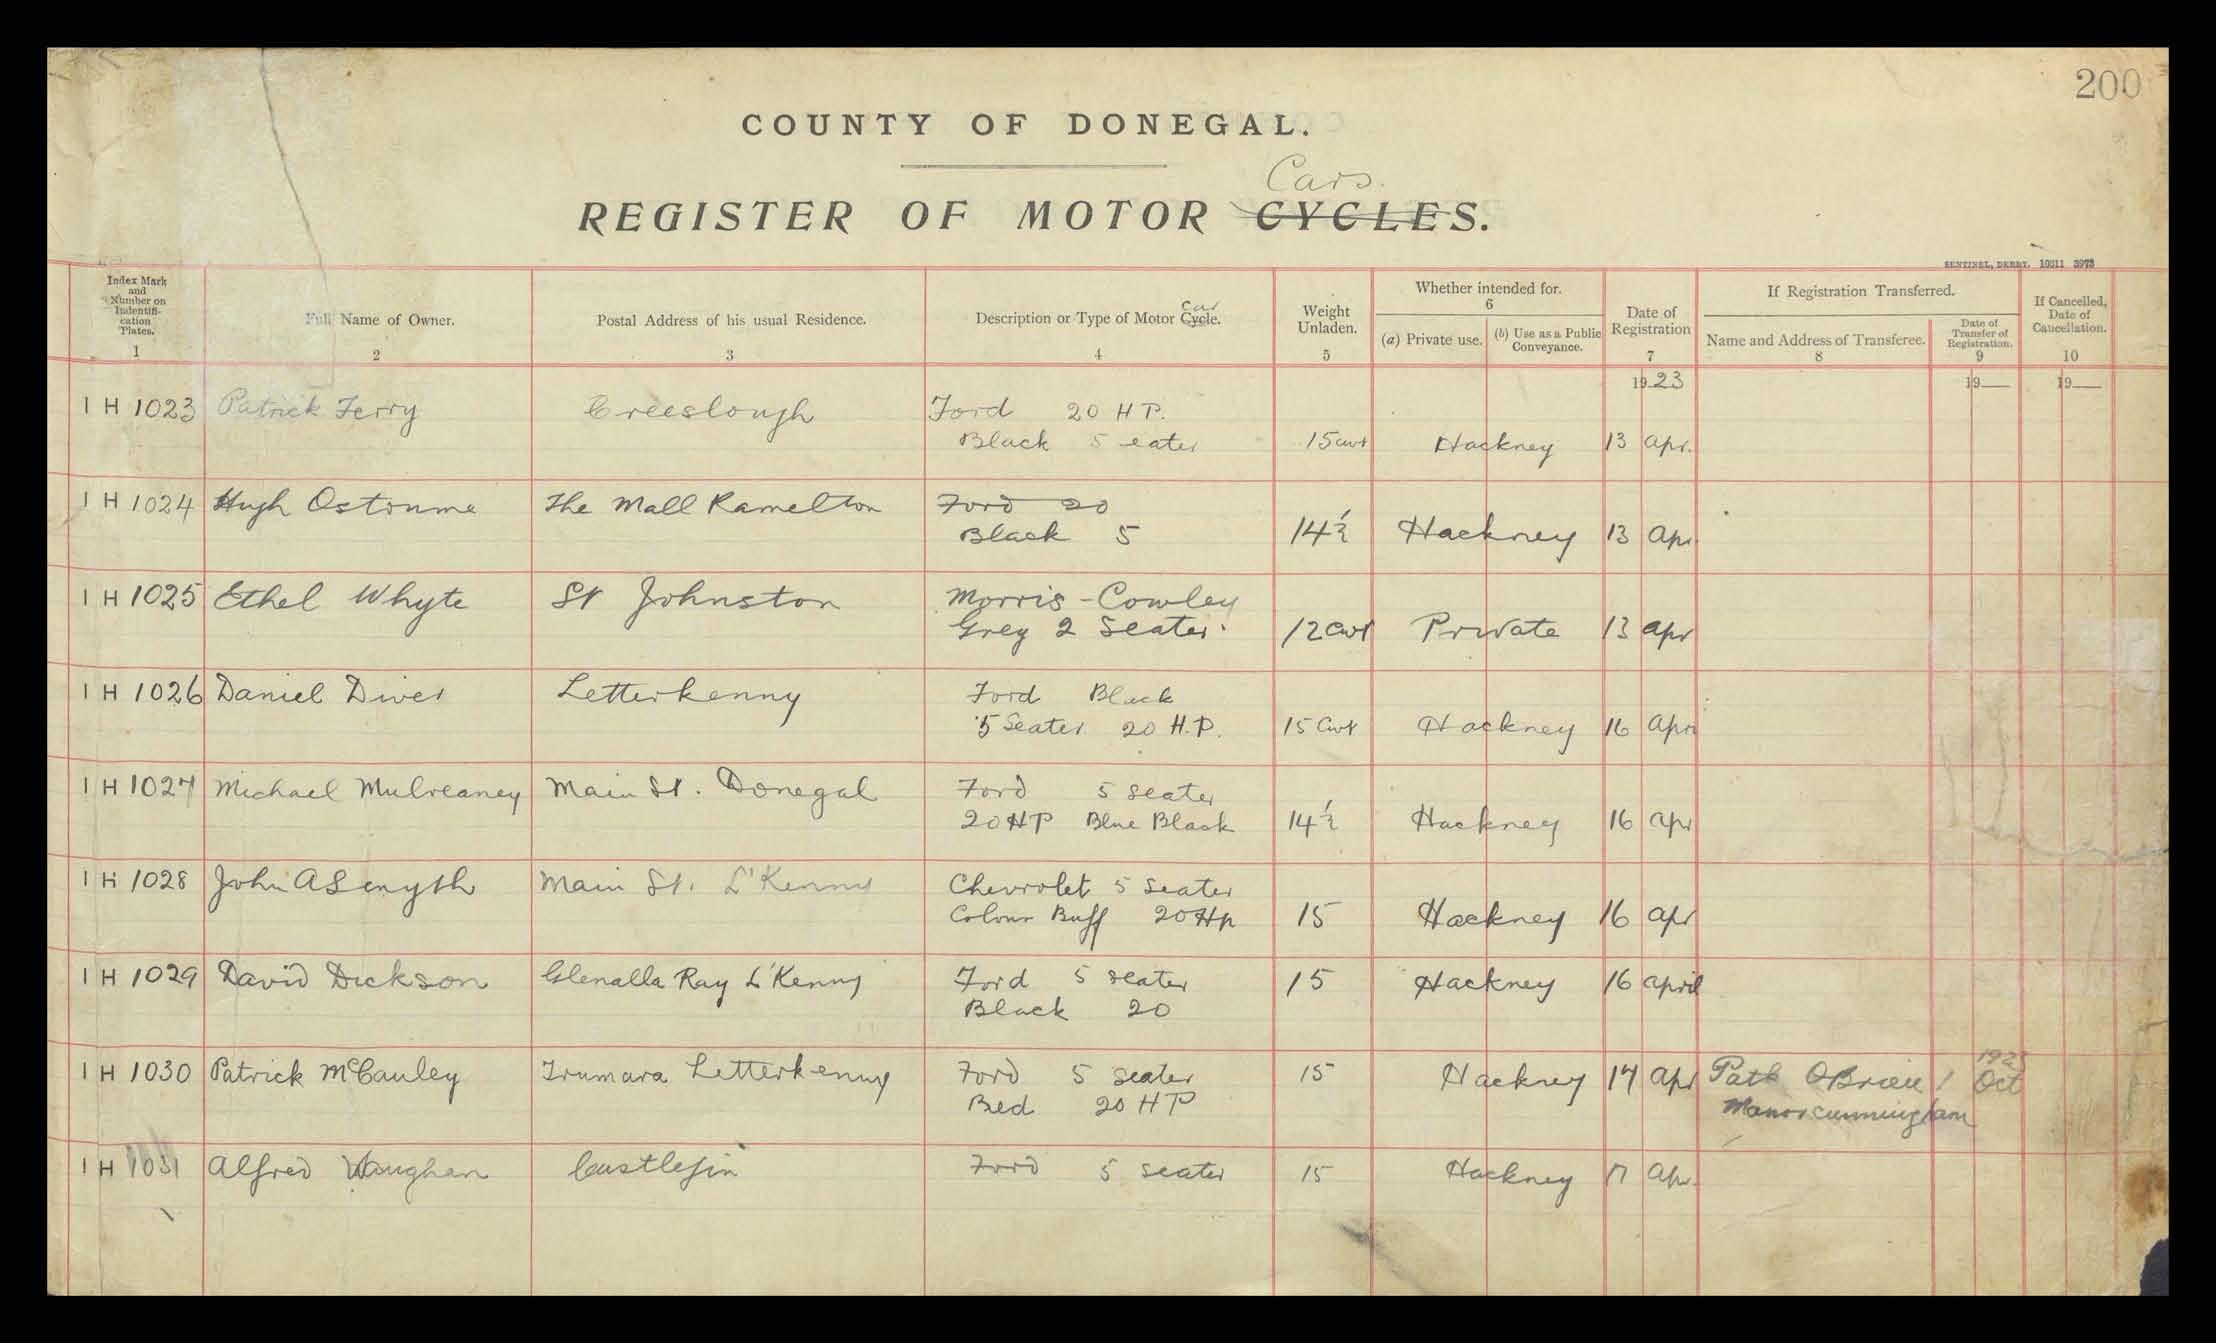 200
COUNTY OF DONEGAL.
Cars.
REGISTER OF MOTOR CYCLES.
SENTINEL, DERRY. 10311 3973
Index Mark and Number on Indentifi-cation Plates.
1
Full Name of Owner.
2
Postal Address of his usual Residence.
3
Car
Description or Type of Motor Cycle.
4
Weight Unladen.
5
Whether intended for.
6
(a) Private use.
(b) Use as a Public Conveyance.
Date of Registration
7
If Registration Transferred.
Name and Address of Transferee.
8
Date of Transfer of Registration.
9
If Cancelled, Date of Caucellation.
10
1923 19 19
IH 1023 Patrick Ferry Creeslough Ford 20 HP.
Black 5 eater 15cwt Hackney 13 Apr.
IH 1024 Hugh The Mall Ramelton Ford 20
Black 5 14½ Hackney 13 Apr
IH 1025 Ethel Whyte St Johnston Morris-Cowley
Grey 2 Seater. 12cwt Private 13 Apr
IH 1026 Daniel Diver Letterkenny Ford Black
5 Seater 20 H.P. 15 Cwt Hackney 16 Apri
IH 1027 Michael Mulreaney Main St. Donegal Ford 5 seater
20HP Blue Black 14½ Hackney 16 Apr
IH 1028 John A Smyth Main St. L'Kenny Chevrolet 5 Seater
Colour Buff 20Hp 15 Hackney 16 Apr
IH 1029 David Dickson Glenalla Ray L'Kenny Ford 5 seater 15 Hackney 16 April
Black 20
IH 1030 Patrick McCauley Trumara Letterkenny Ford 5 seater 15 Hackney 17 Apr Patk OBrien Oct
Red 20 HP Manorcunningham
IH 1031 Alfred Vaughan Castlefin Ford 5 seater 15 Hackney 17 Ap.